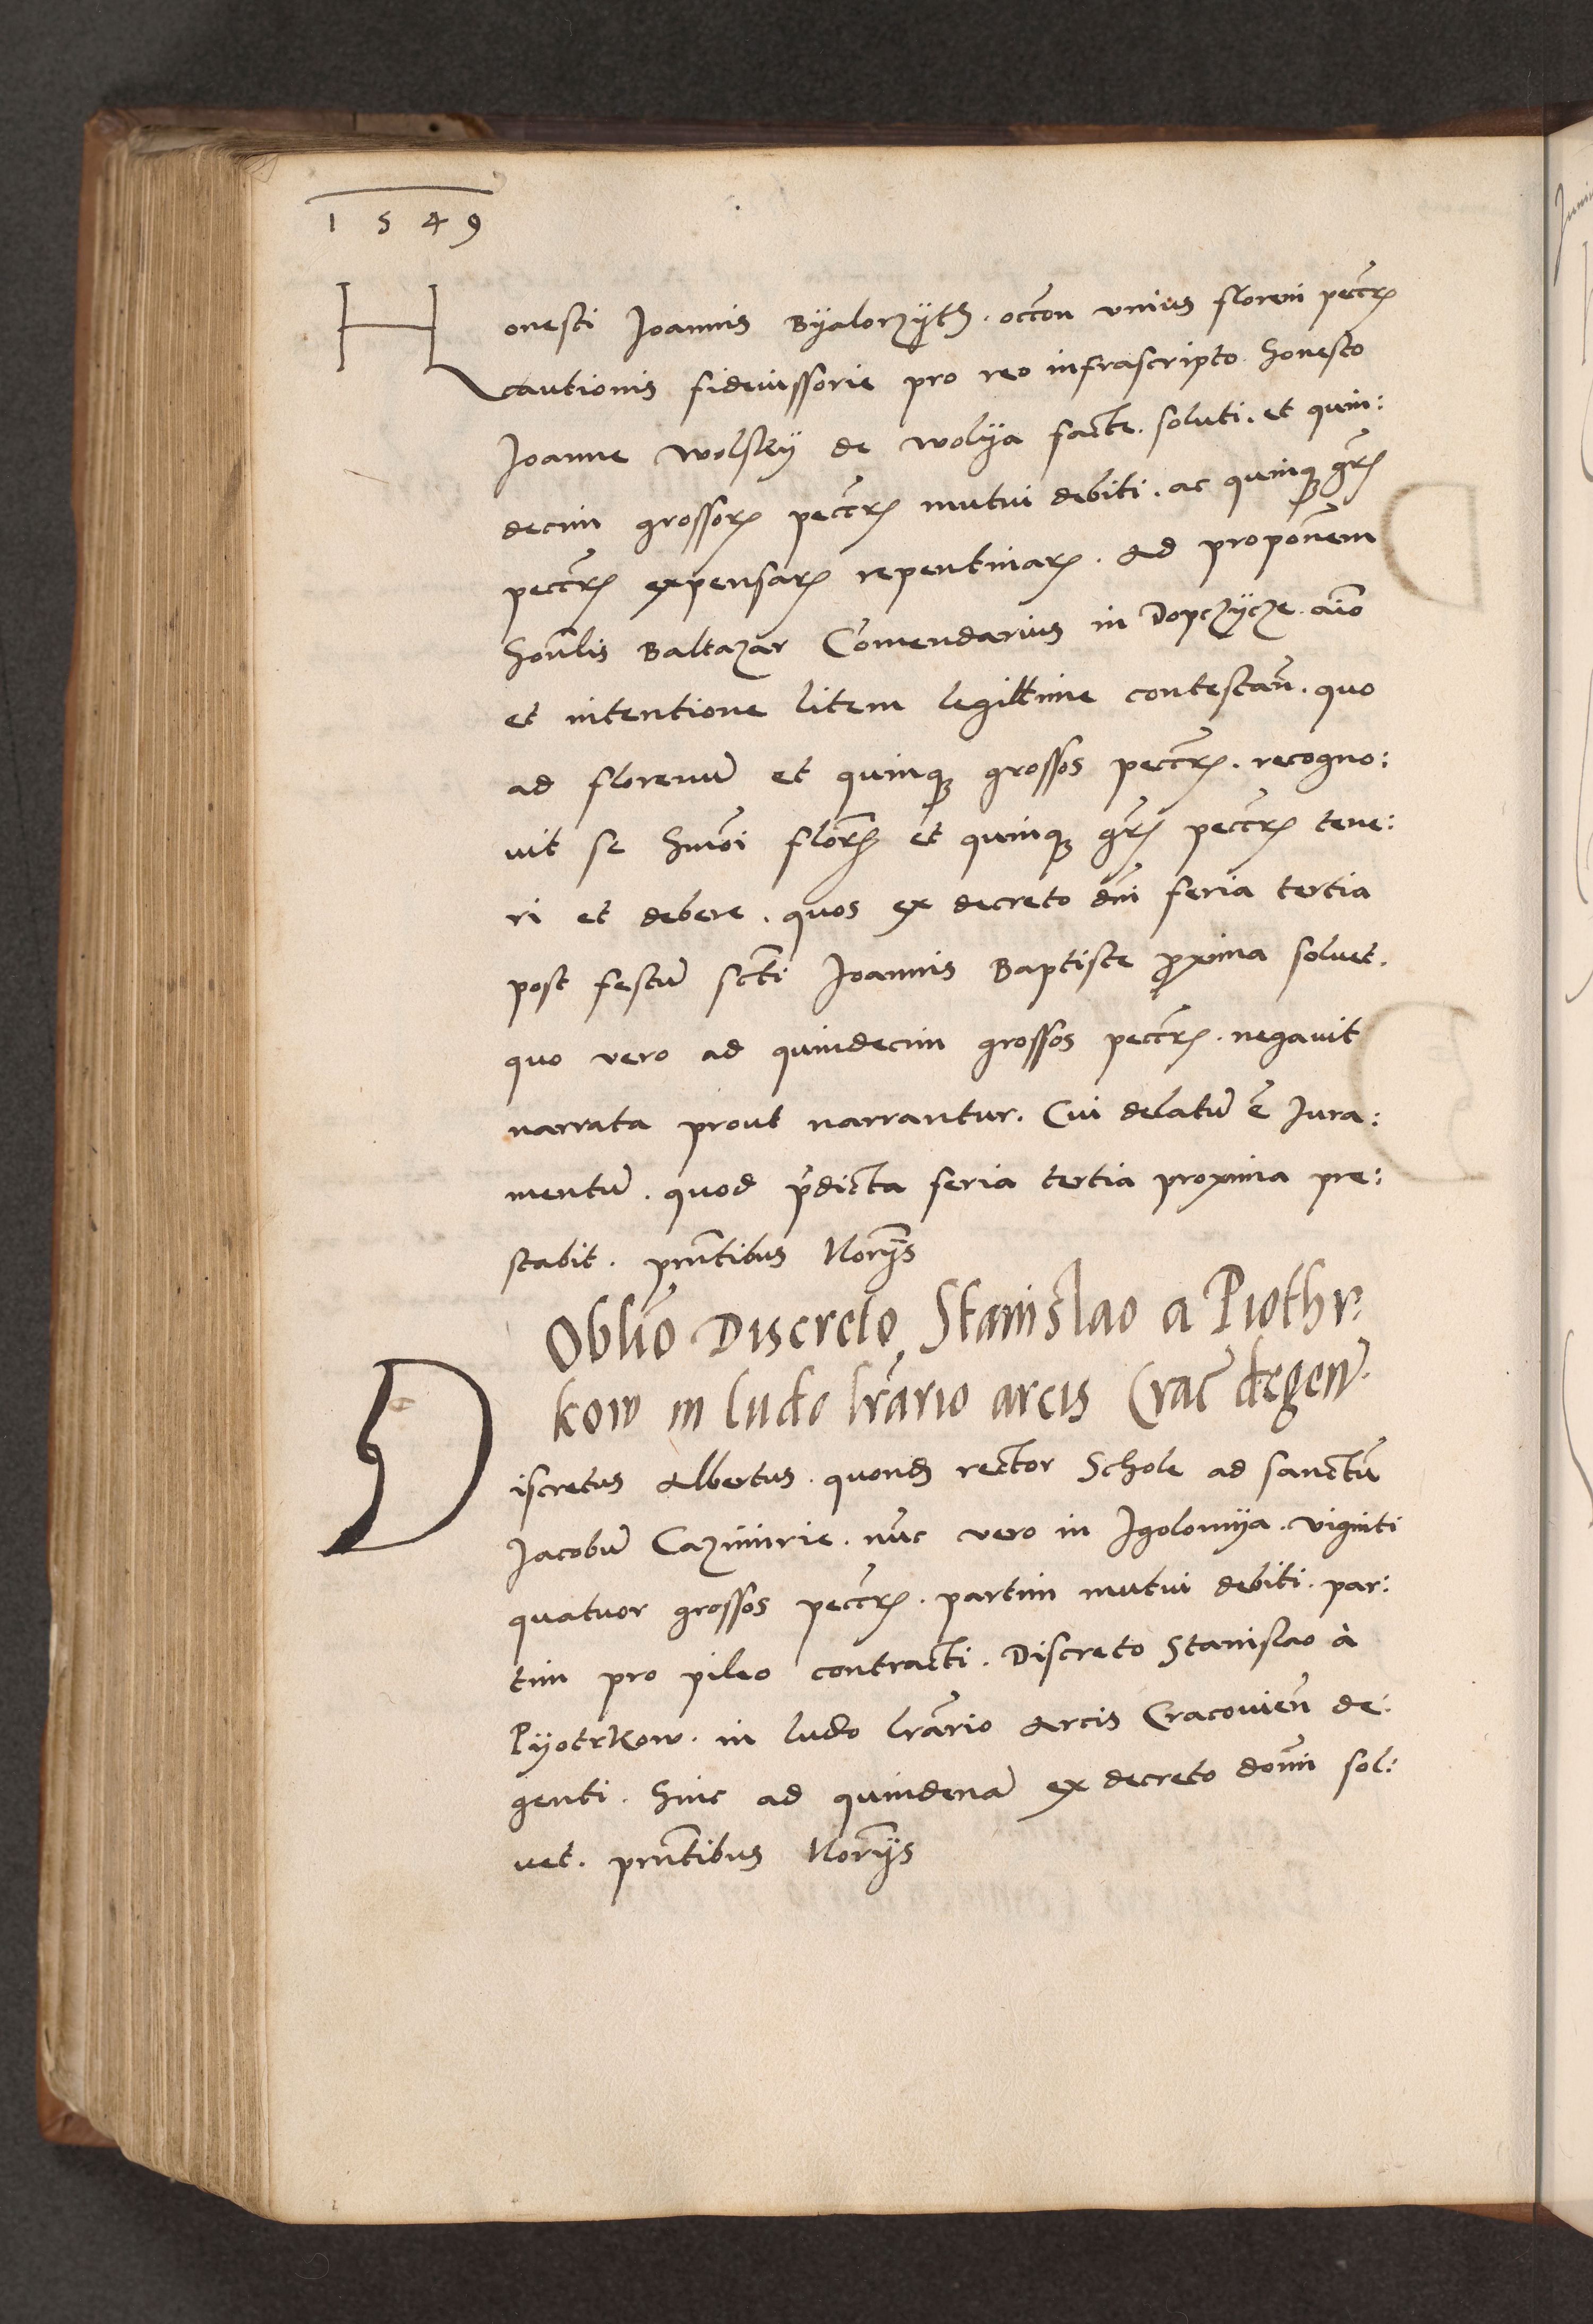 1549
Honesti Joannis Byalorzyth. occōn unius floreni peccrꝝ
cautionis fideiussorie pro reo infrascripto honesto
Joanne Wolsky de Wolya facte. soluti. et quin:
decim grossorꝝ peccrꝝ mutui debiti. ac quinqꝫ grꝝ
peccrꝝ expensarꝝ repentinarꝝ. Ad proponēm
honlis Baltazar Comendarius in Dopczycze. aīo
et intentione litem legittime contestan̄. quo
ad florenū et quinqꝫ grossos peccrꝝ. recogno:
vit se hmōi florꝝ et quinqꝫ grꝝ peccrꝝ tene:
ri et debere. quos ex decreto dn̄i feria tertia
post festū scti Joannis Baptiste ꝓxima solvet.
quo vero ad quindecim grossos peccrꝝ. negavit
narrata prout narrantur. Cui delatū ē Jura:
mentū. quod p̄dicta feria tertia proxima pre:
stabit. pn̄tibus Norijs
Oblīo Discreto Stanislao a Piothr:
kow in ludo lrārio arcis Crac̄ degen̄.
Discretus Albertus. quondā rector Schole ad sanctū
Jacobū Cazimirie. nūc vero in Jgolomya. viginti
quatuor grossos peccrꝝ. partim mutui debiti. par:
tim pro pileo contracti. Discreto Stanislao à
Pyotrkow. in ludo lrārio Arcis Cracovien̄ de:
genti. hinc ad quindenā ex decreto domī sol:
vet. pn̄tibus Norijs